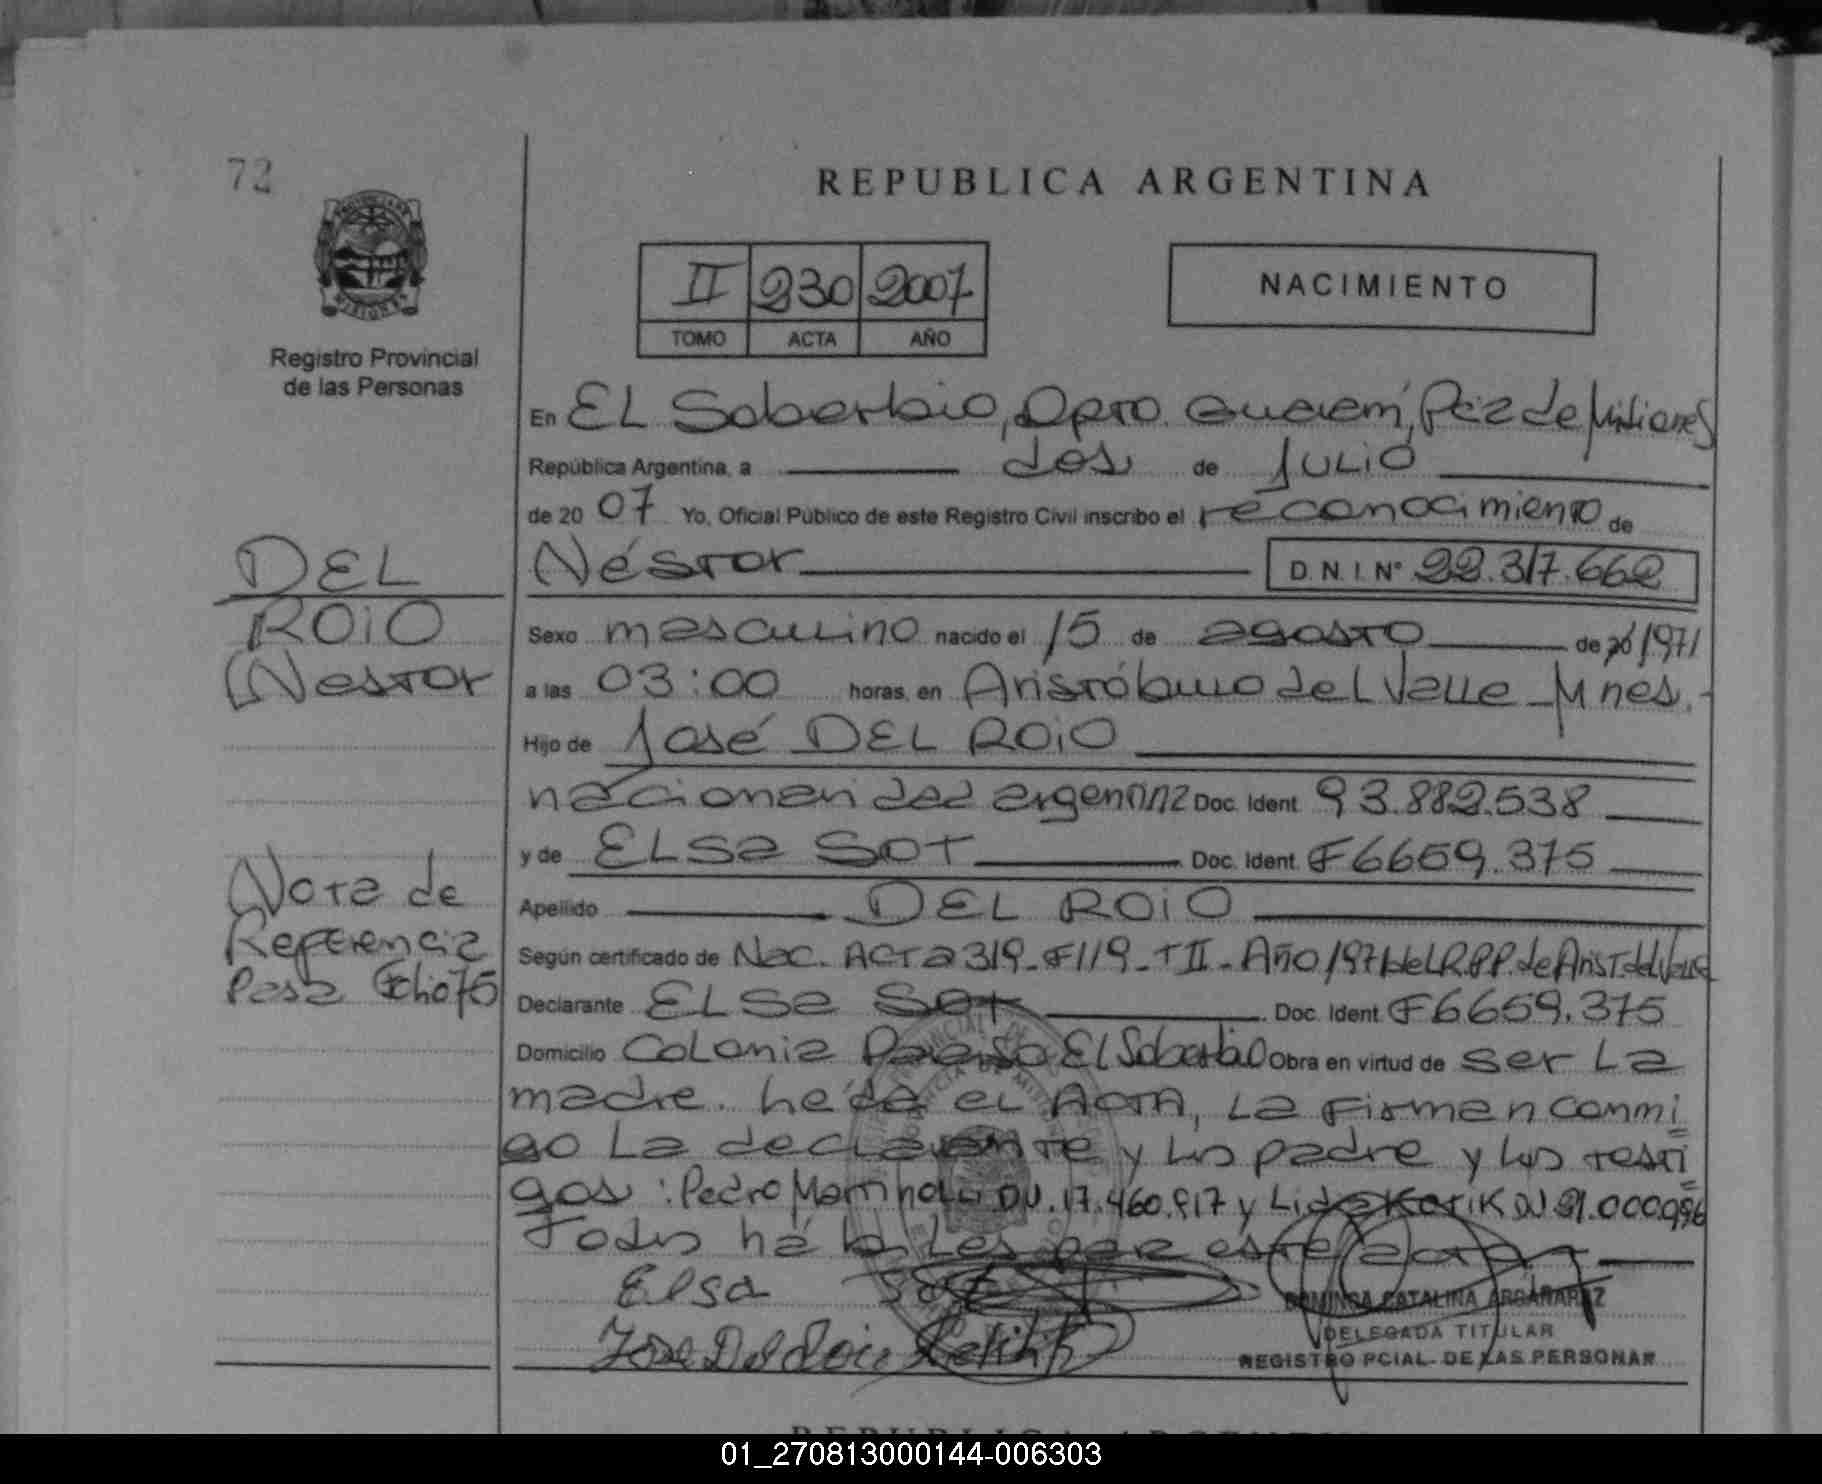 72
REPUBLICA ARGENTINA
II 230 2007
TOMO ACTA AÑO
NACIMIENTO
Registro Provincial
de las Personas
En EL Soberbio, Dpto. Guaraní, Pcia de Misiones
República Argentina, a dos de Julio
de 2007 Yo, Oficial Público de este Registro Civil inscribo el reconocimiento de
Néstor D.N.I. N° 22.317.662
DEL
ROiO
(Nestor
Sexo masculino nacido el 15 de agosto de 20 1971
a las 03:00 horas, en Aristóbulo del Valle - Mnes.-
Hijo de José DEL ROiO
nacionalidad argentina Doc. Ident. 93.882.538
y de ELsa SOT Doc. Ident. F6659.375
Apellido DEL ROiO
Nota de
Referencia
Pasa Folio 75
Según certificado de Nac. ACTa 319-F119-TII-Año 1971 del R.P.P. de Arist. del Valle
Declarante ELSa Sot Doc. Ident. F6659.375
Domicilio Colonia El Soberbio Obra en virtud de ser La
madre. Leída el Acta, La Firman conmi
go La declarante y los padre y los testi
gos: Pedro DU. 17.460.917 y Lida DU
Todos hábiles para este acto
Elsa Sot
Jose Del Roio
DOMINGA CATALINA ARGAÑARAZ
DELEGADA TITULAR
REGISTRO PCIAL. DE LAS PERSONAS
01_270813000144-006303